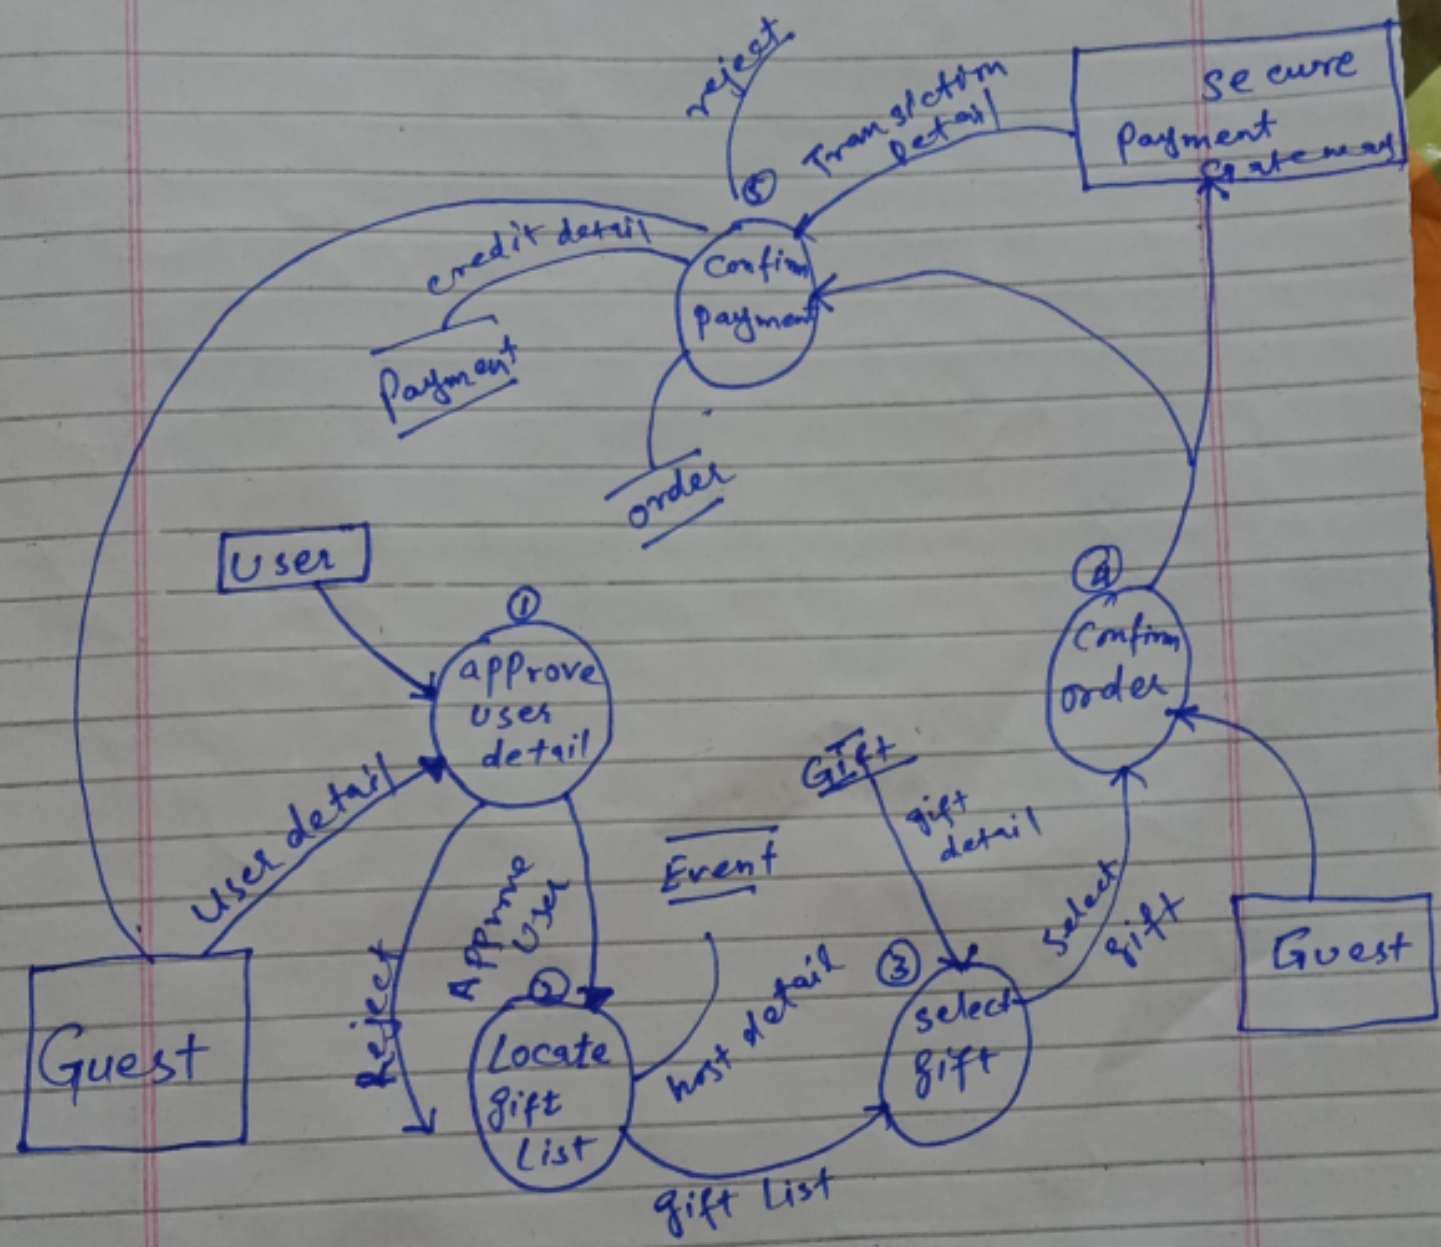 reject
Transiction
Detail
Secure
Payment
Gateway
5
credit detail
Confirm
payment
Payment
order
User
1
approve
user
detail
4
Confirm
order
User detail
Gift
gift
detail
Event
Approve
User
Reject
2
Locate
gift
List
host detail
3
select
gift
select
gift
Guest
Guest
gift List